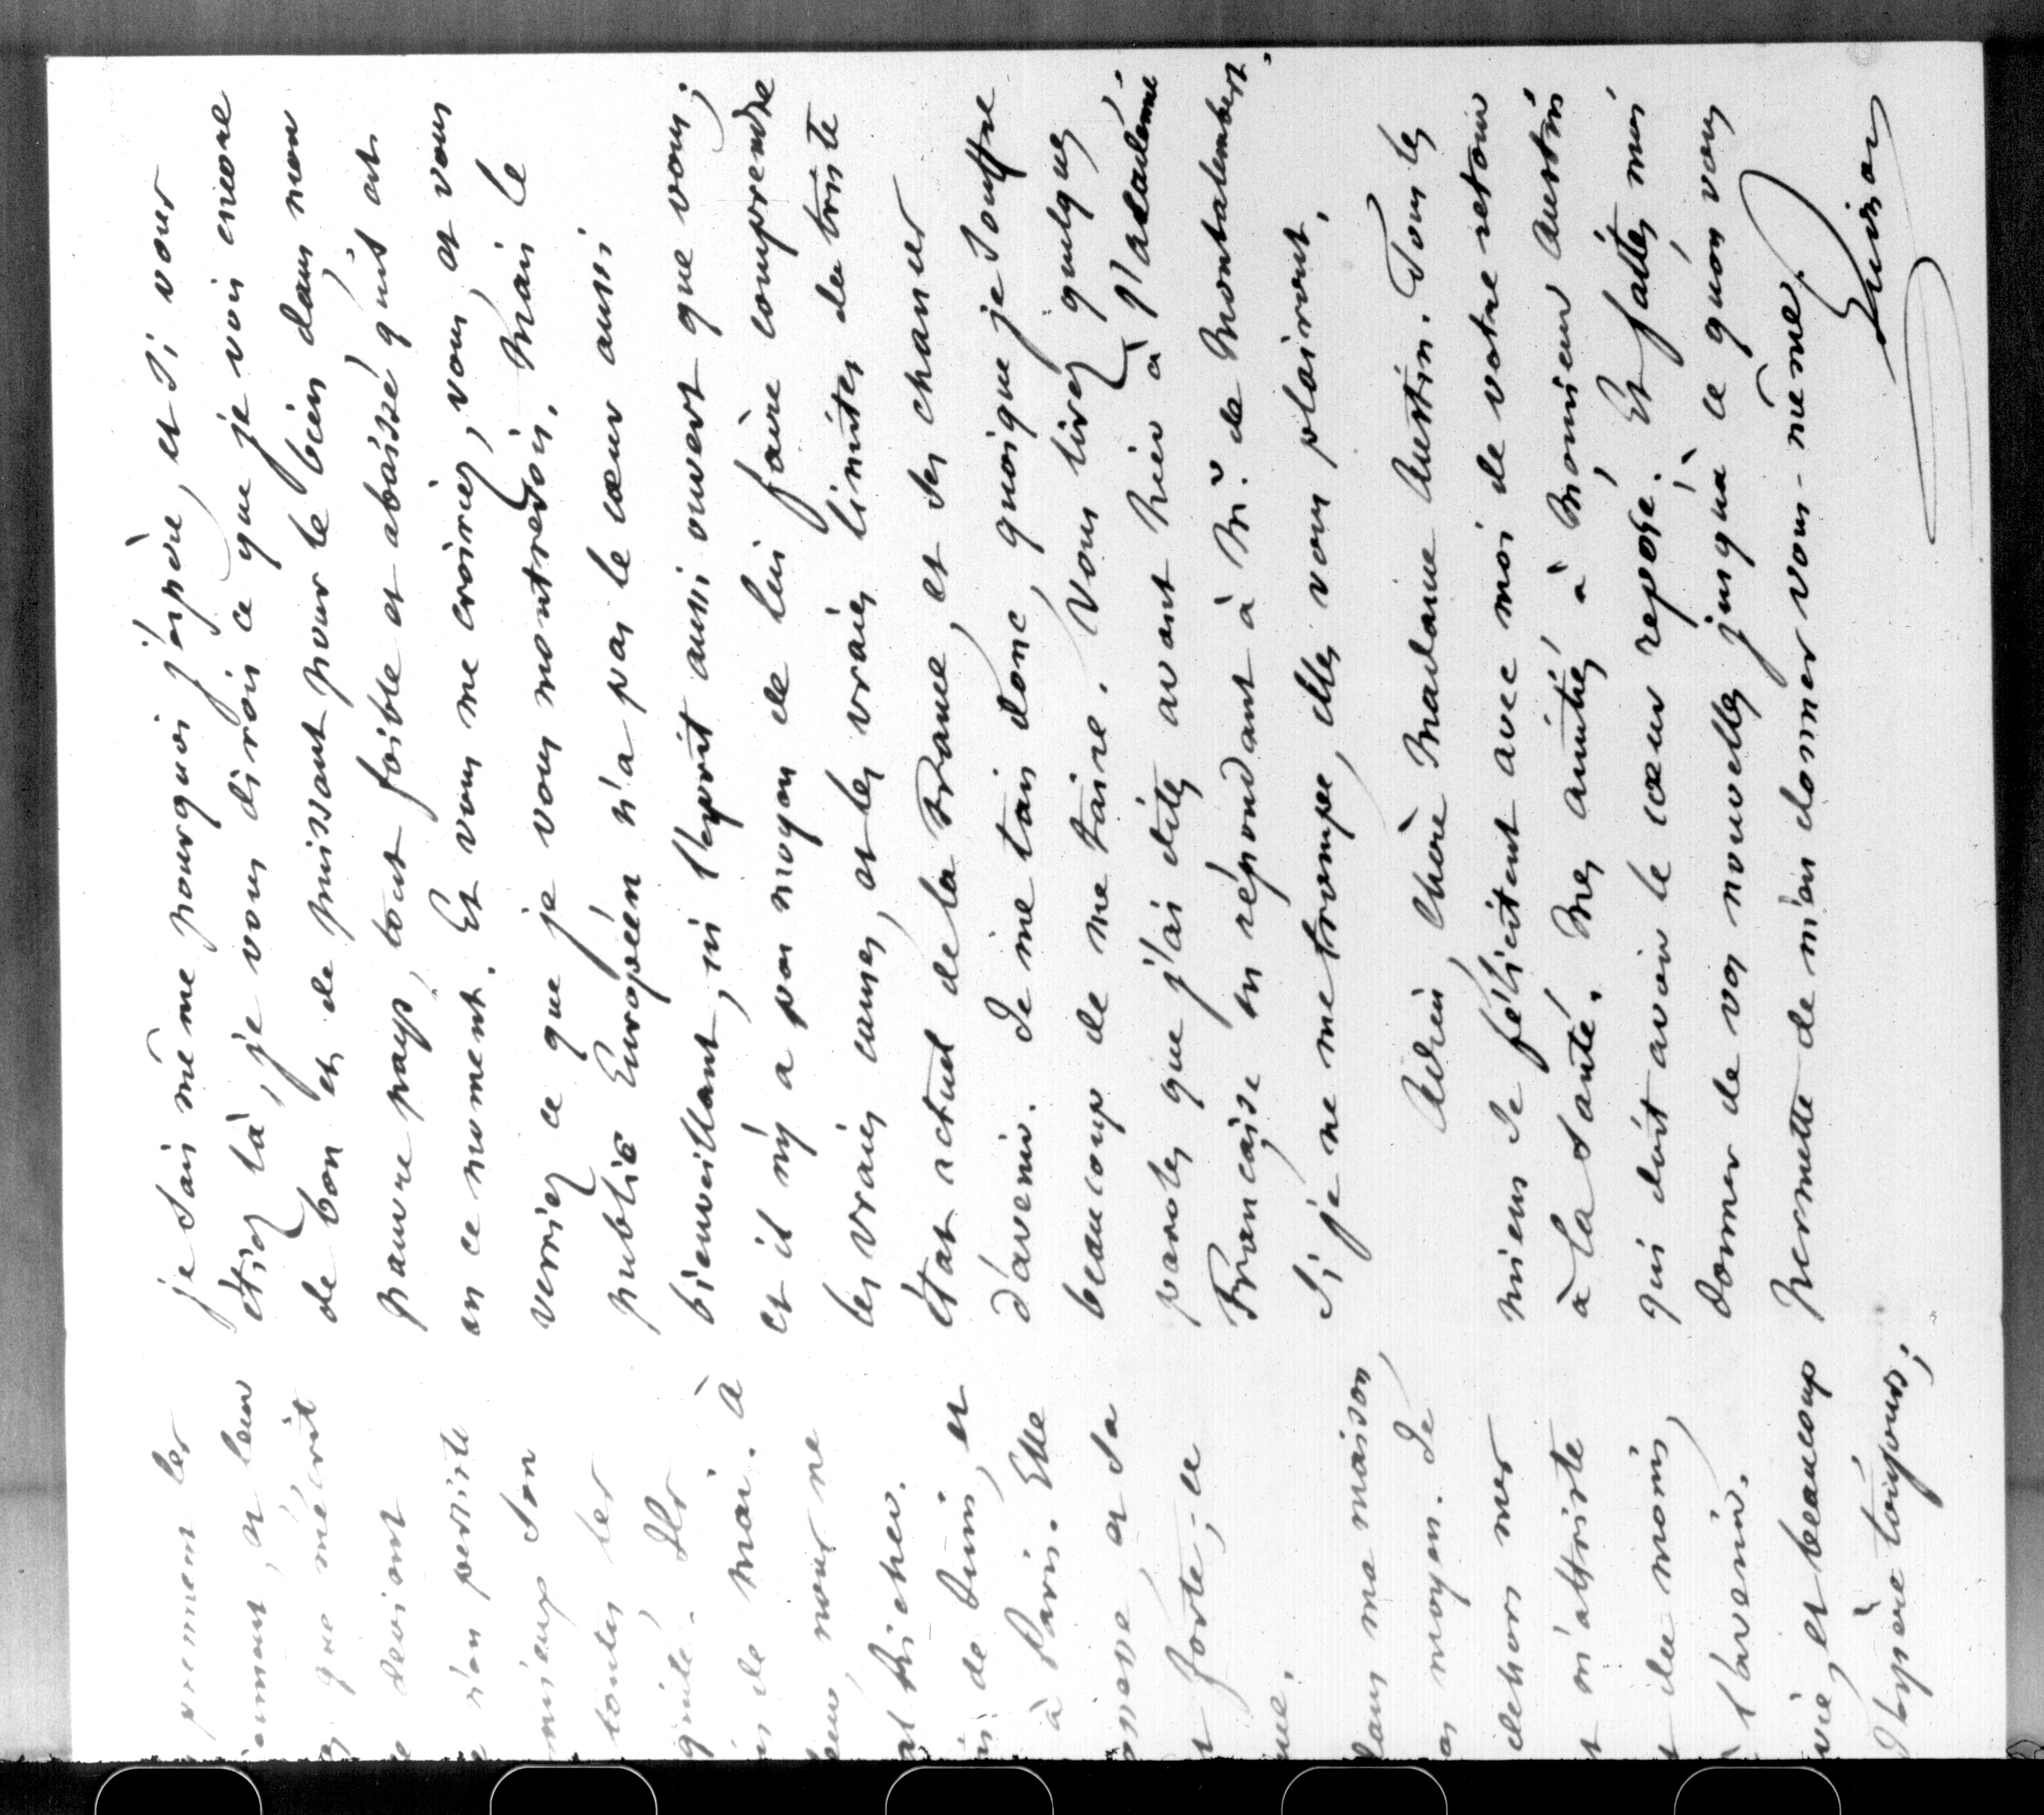 prement les
ement, et leur
que m'écrit
devient
n'en persiste
mieux son
toutes les
guité. Ils
de mai. à
nous ne
al Richer.
de Juin, et
à Paris. Elle
et sa
forte; ce
que.
dans ma maison,
moyen. Je
dehors mes
m'attriste
du moins,
l'avenir.
vie, et beaucoup
J'espère toujours;
je sais même pourquoi j'espère, et si vous
étiez là, je vous dirois ce que je vois encore
de bon et de puissant pour le bien dans mon
pauvre pays, tout foible et abaissé qu'il est
en ce moment. Et vous me croiriez, vous, et vous
verriez ce que je vous montrerois. Mais le
public Européen n'a pas le cœur aussi
bienveillant, ni l'esprit aussi ouvert que vous;
et il n'y a pas moyen de lui faire comprendre
les vraies causes, et les vraies limites du triste
état actuel de la France, et ses chances
d'avenir. Je me tais donc, quoique je souffre
beaucoup de me taire. Vous lirez quelques
paroles que j'ai dites avant hier à l'académie
Française en répondant à Mr. de Montalembert.
Si je ne me trompe, elles vous plairont.
Adieu, chère Madame Austin. Tous les
miens se félicitent avec moi de votre retour
à la santé. Mes amitiés à Monsieur Austin
qui doit avoir le cœur reposé. Et faites moi
donner de vos nouvelles jusqu'à ce qu'on vous
permette de m'en donner vous-même.
Guizot